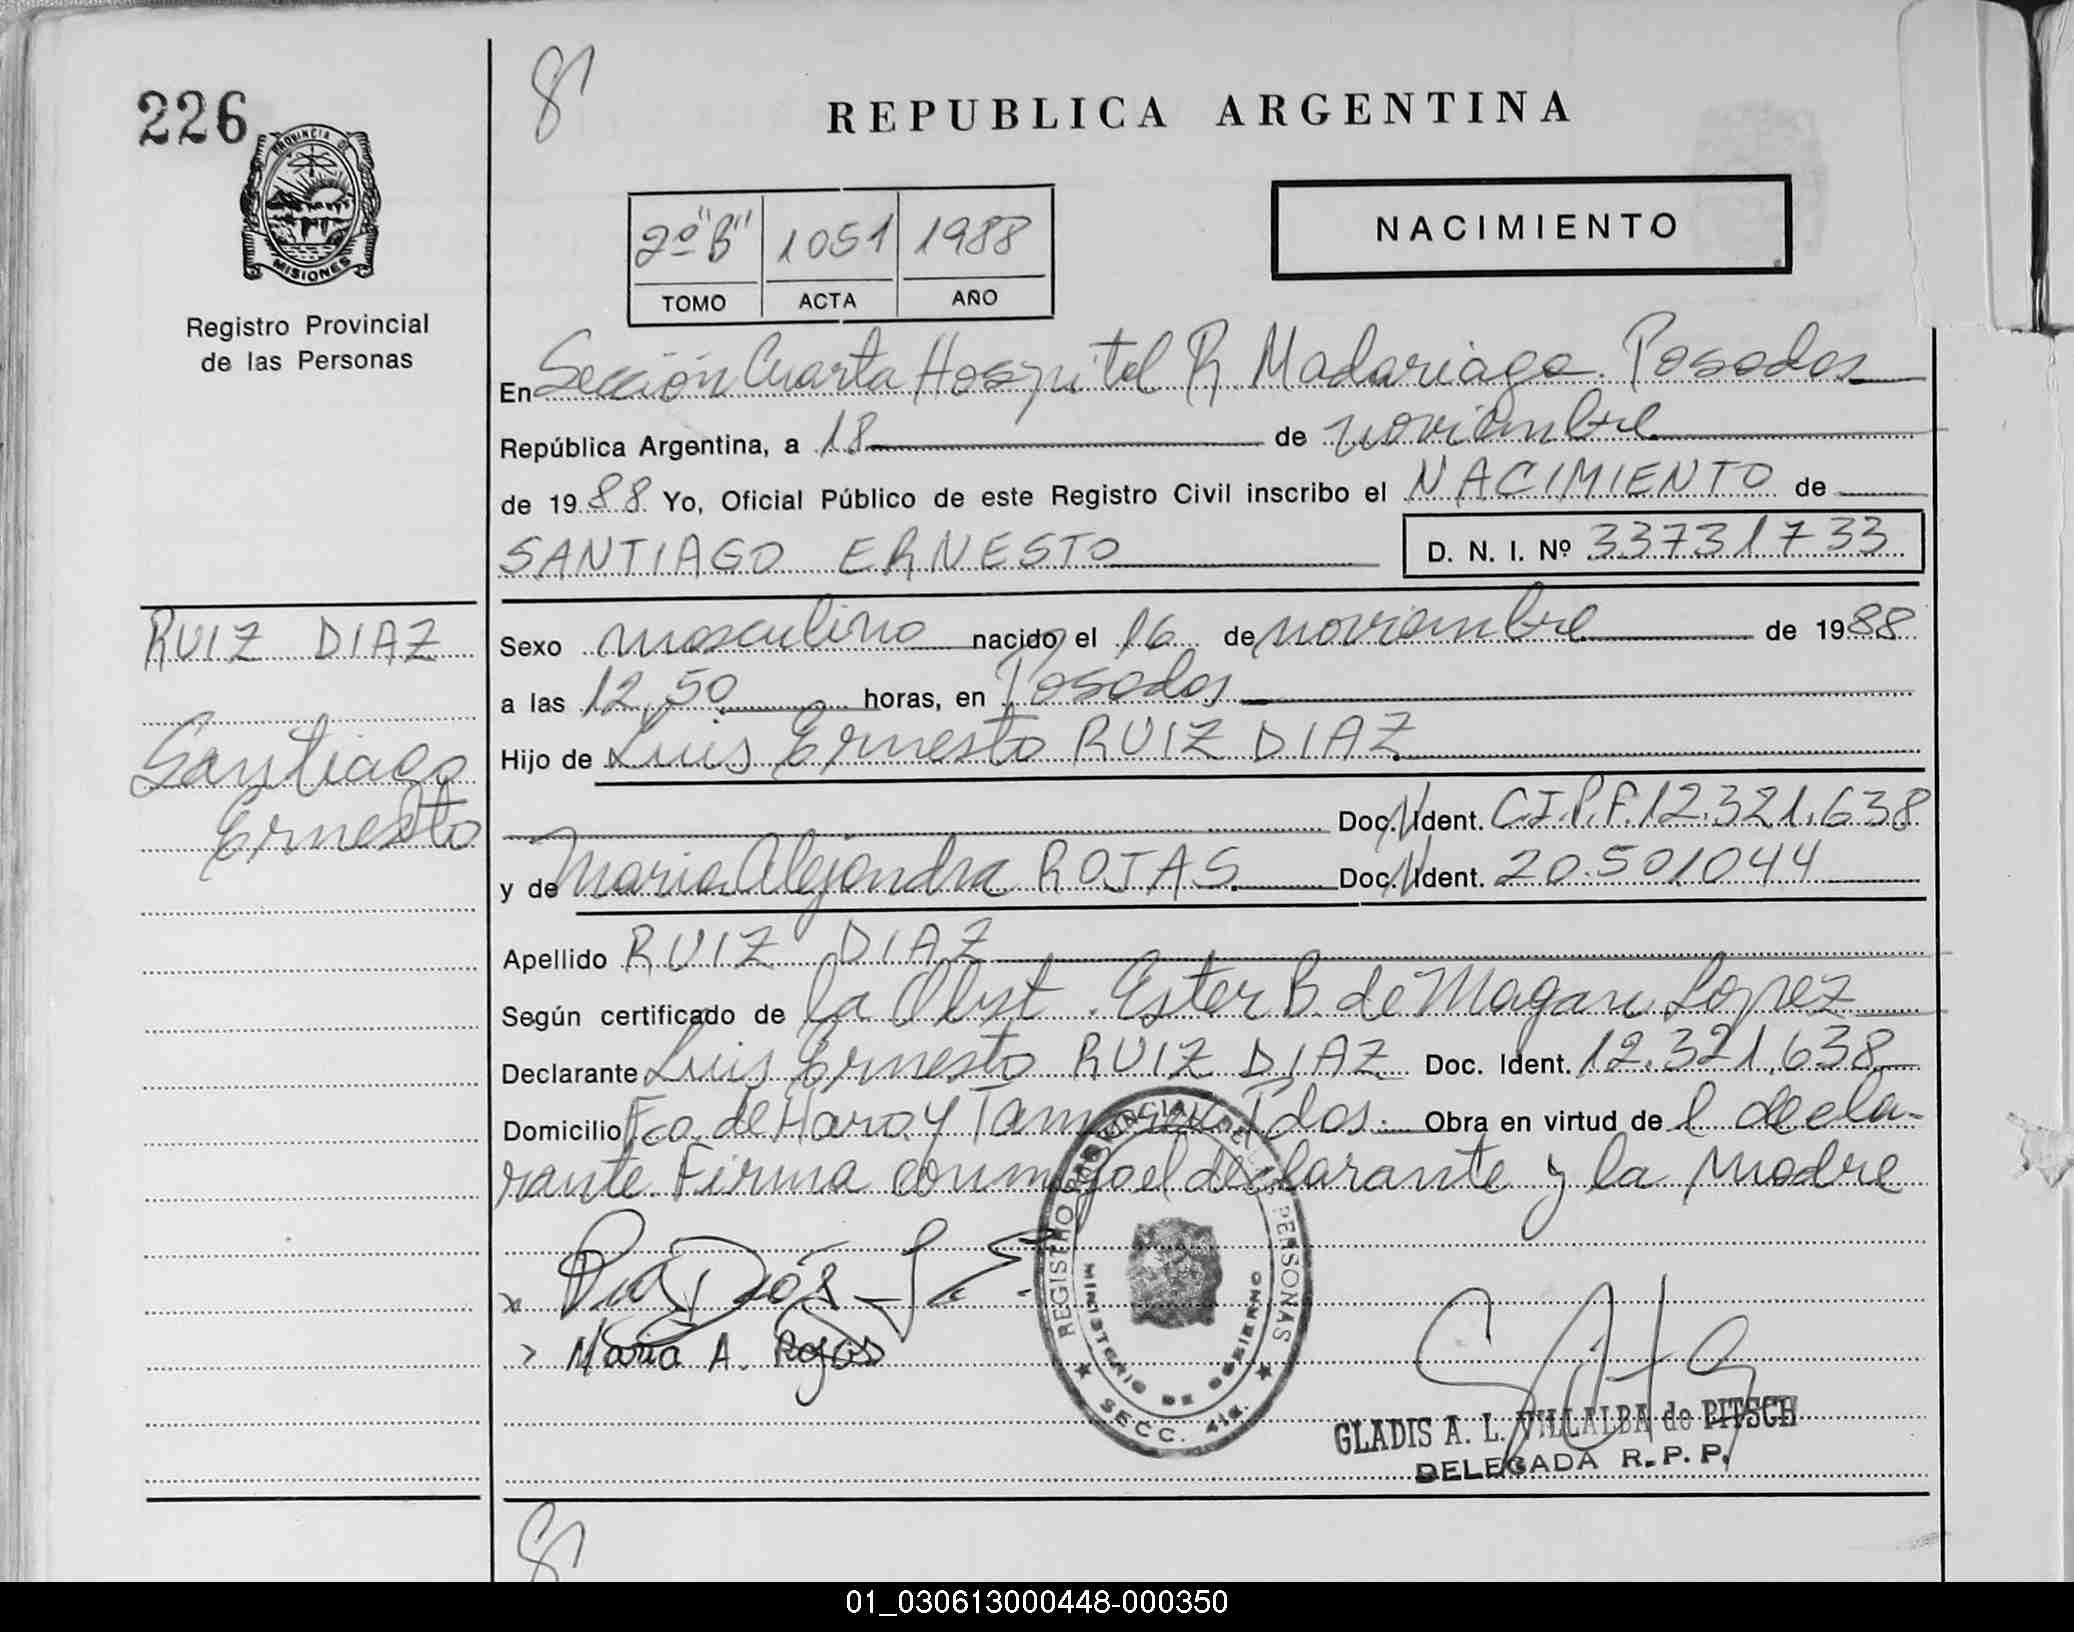 226
8
REPUBLICA ARGENTINA
PROVINCIA DE
MISIONES
Registro Provincial
de las Personas
2º "B" 1051 1988
TOMO ACTA AÑO
NACIMIENTO
En Sección Cuarta Hospital R. Madariaga. Posadas
República Argentina, a 18 de noviembre
de 1988 Yo, Oficial Público de este Registro Civil inscribo el NACIMIENTO de
SANTIAGO ERNESTO D. N. I. Nº 33731733
RUIZ DIAZ
Santiago
Ernesto
Sexo masculino nacido el 16 de noviembre de 1988
a las 12,50 horas, en Posadas
Hijo de Luis Ernesto RUIZ DIAZ
Doc. Ident. C.I.P.F. 12.321.638
y de Maria Alejandra ROJAS Doc. Ident. 20.501044
Apellido RUIZ DIAZ
Según certificado de la Obst. Ester B. de Lopez
Declarante Luis Ernesto RUIZ DIAZ Doc. Ident. 12.321.638
Domicilio Fco. de Haro y Pdos. Obra en virtud de l decla-
rante. Firma conmigo el declarante y la madre
Maria A. Rojas
REGISTRO PROVINCIAL DE LAS PERSONAS
MINISTERIO DE GOBIERNO
SECC. 4ta.
GLADIS A. L. VILLALBA de PITSCH
DELEGADA R. P. P.
8
01_030613000448-000350